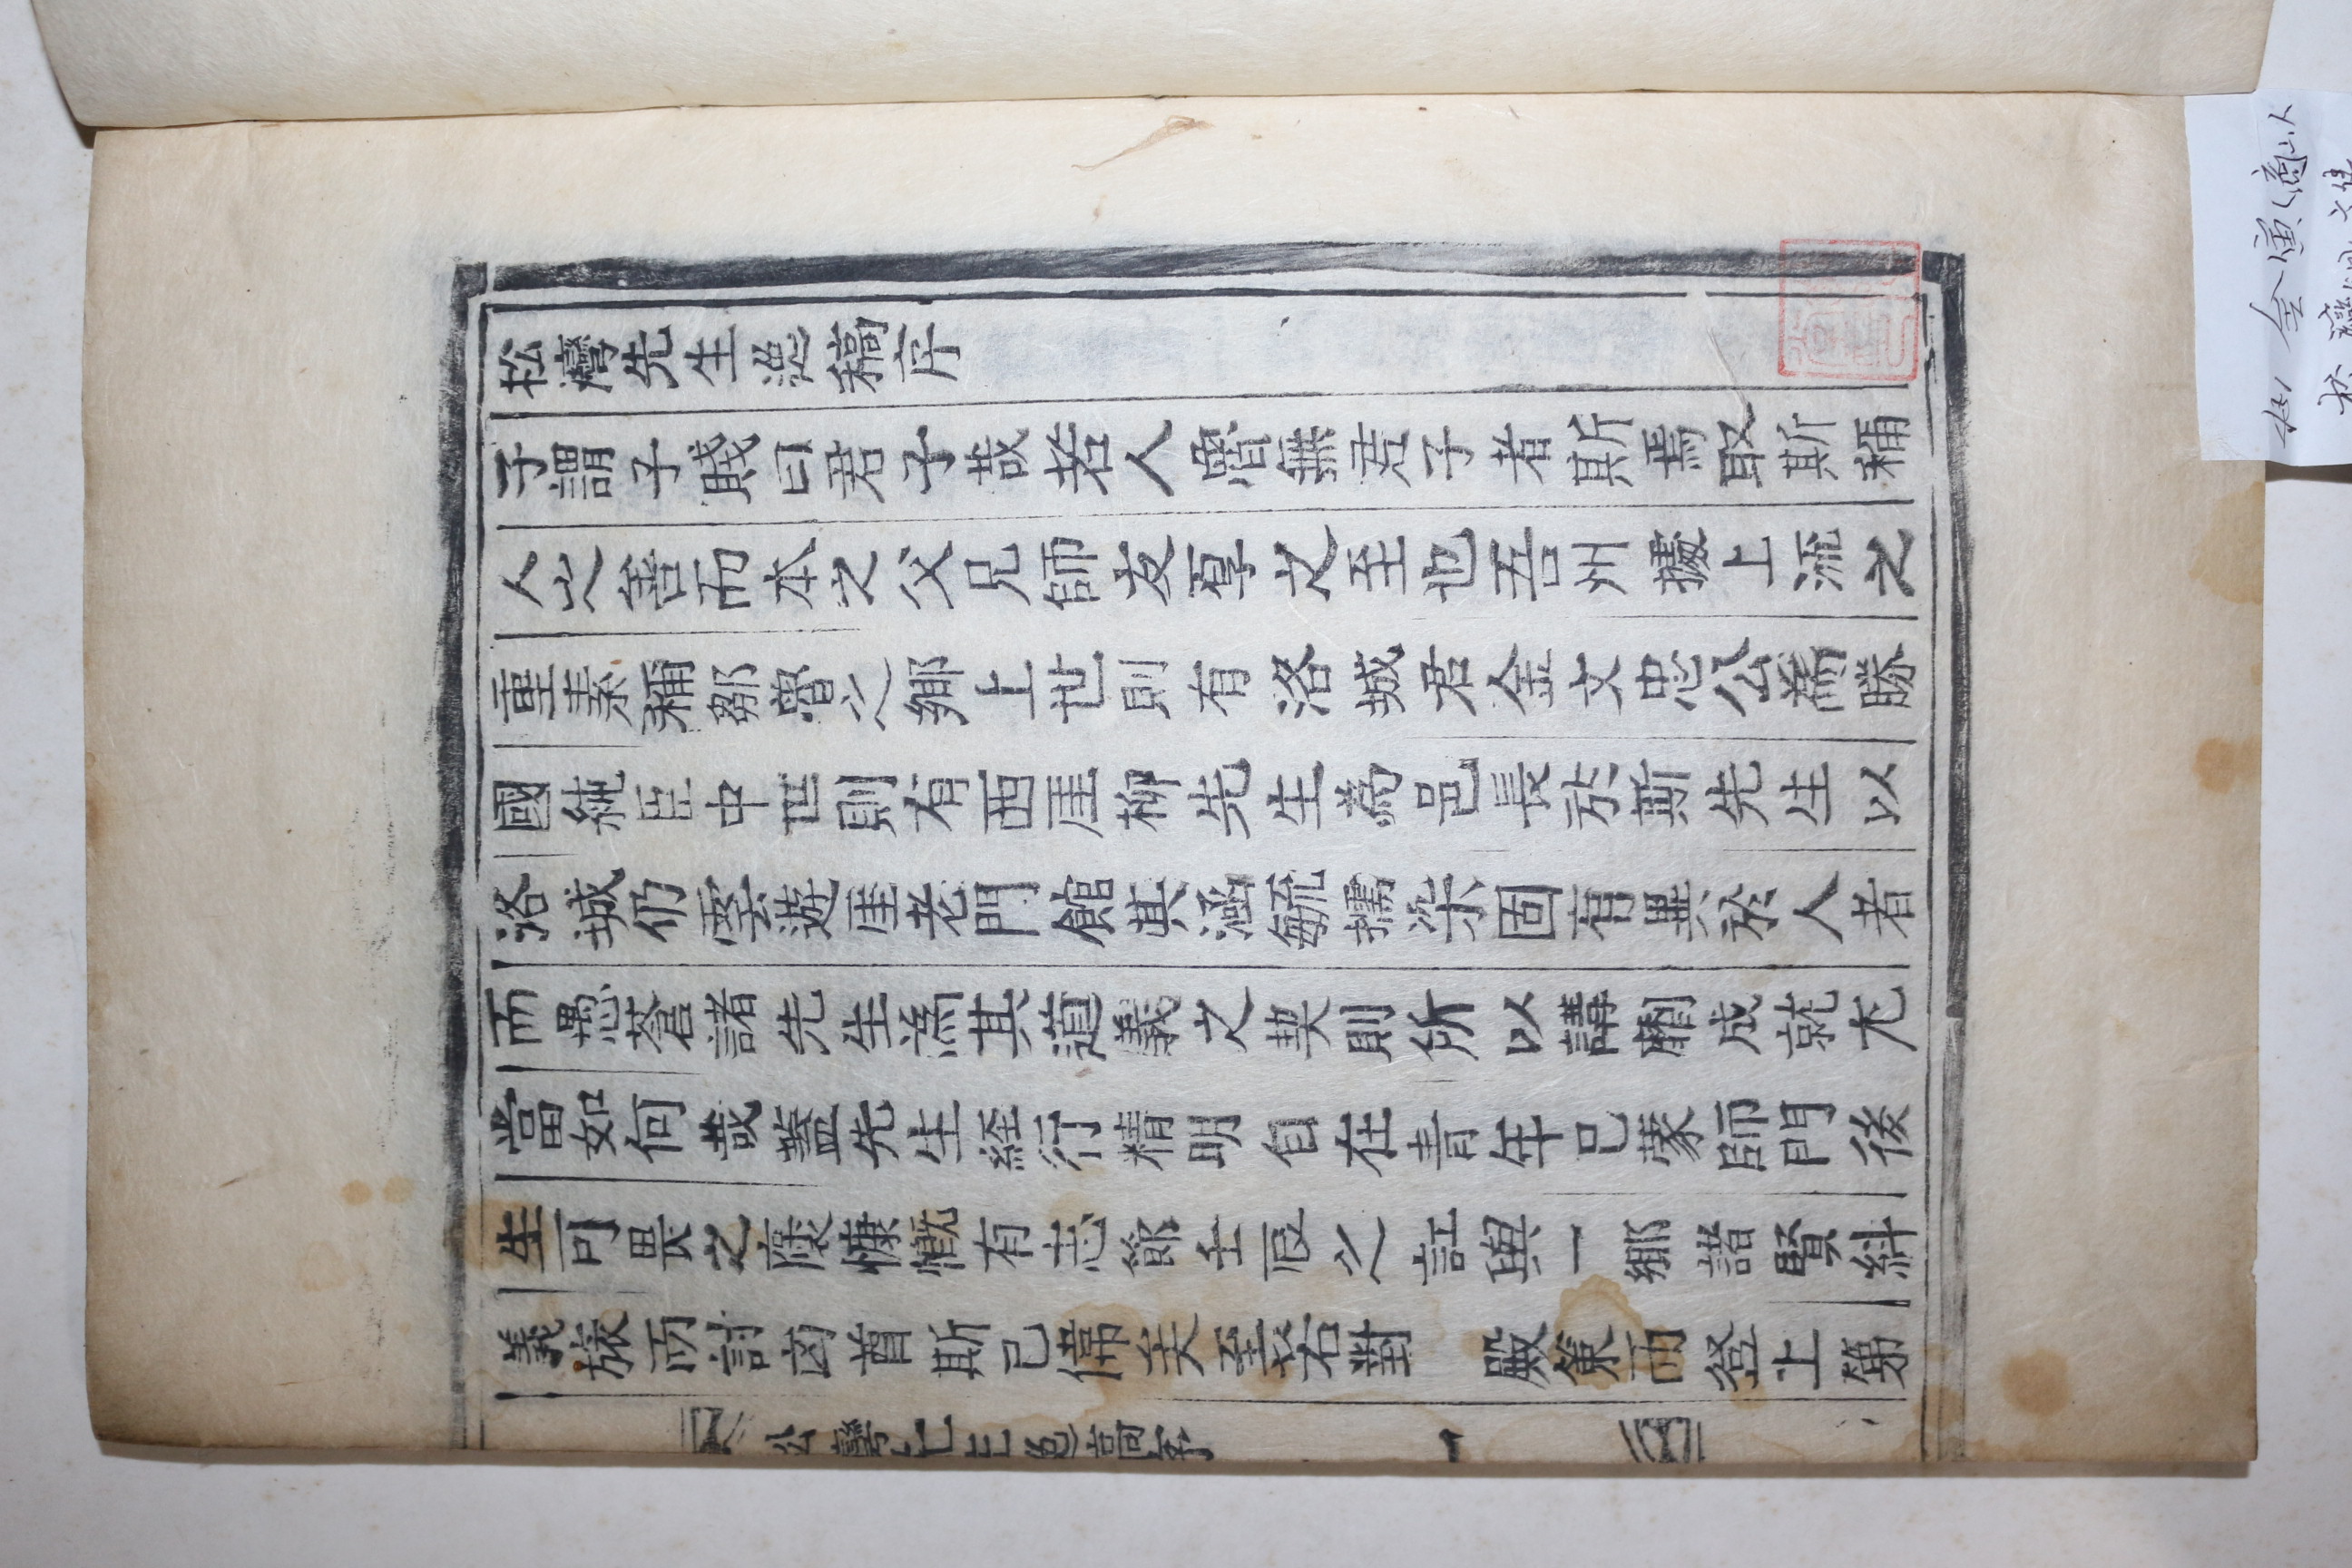 松灣先生逸稿序
子謂子賤曰君子哉若人魯無君子者斯焉取斯稱
人之善而本之父兄師友厚之至也吾州據上流之
重素稱鄒魯之鄉上世則有洛城君金文忠公為勝
國純臣中世則有西厓柳先生為邑長於斯先生以
洛城仍雲遊厓老門館其涵毓擩染固有異於人者
而愚蒼諸先生為其道義之契則所以講劘成就尤
當如何哉蓋先生經行精明自在青年已蒙師門後
生可畏之褒慷慨有志節壬辰之訌與一鄉諸賢糾
義旅而討凶酋斯已偉矣至若對 殿策而登上第
松灣先生逸稿序
一
金寅(商山人
松灣 文集